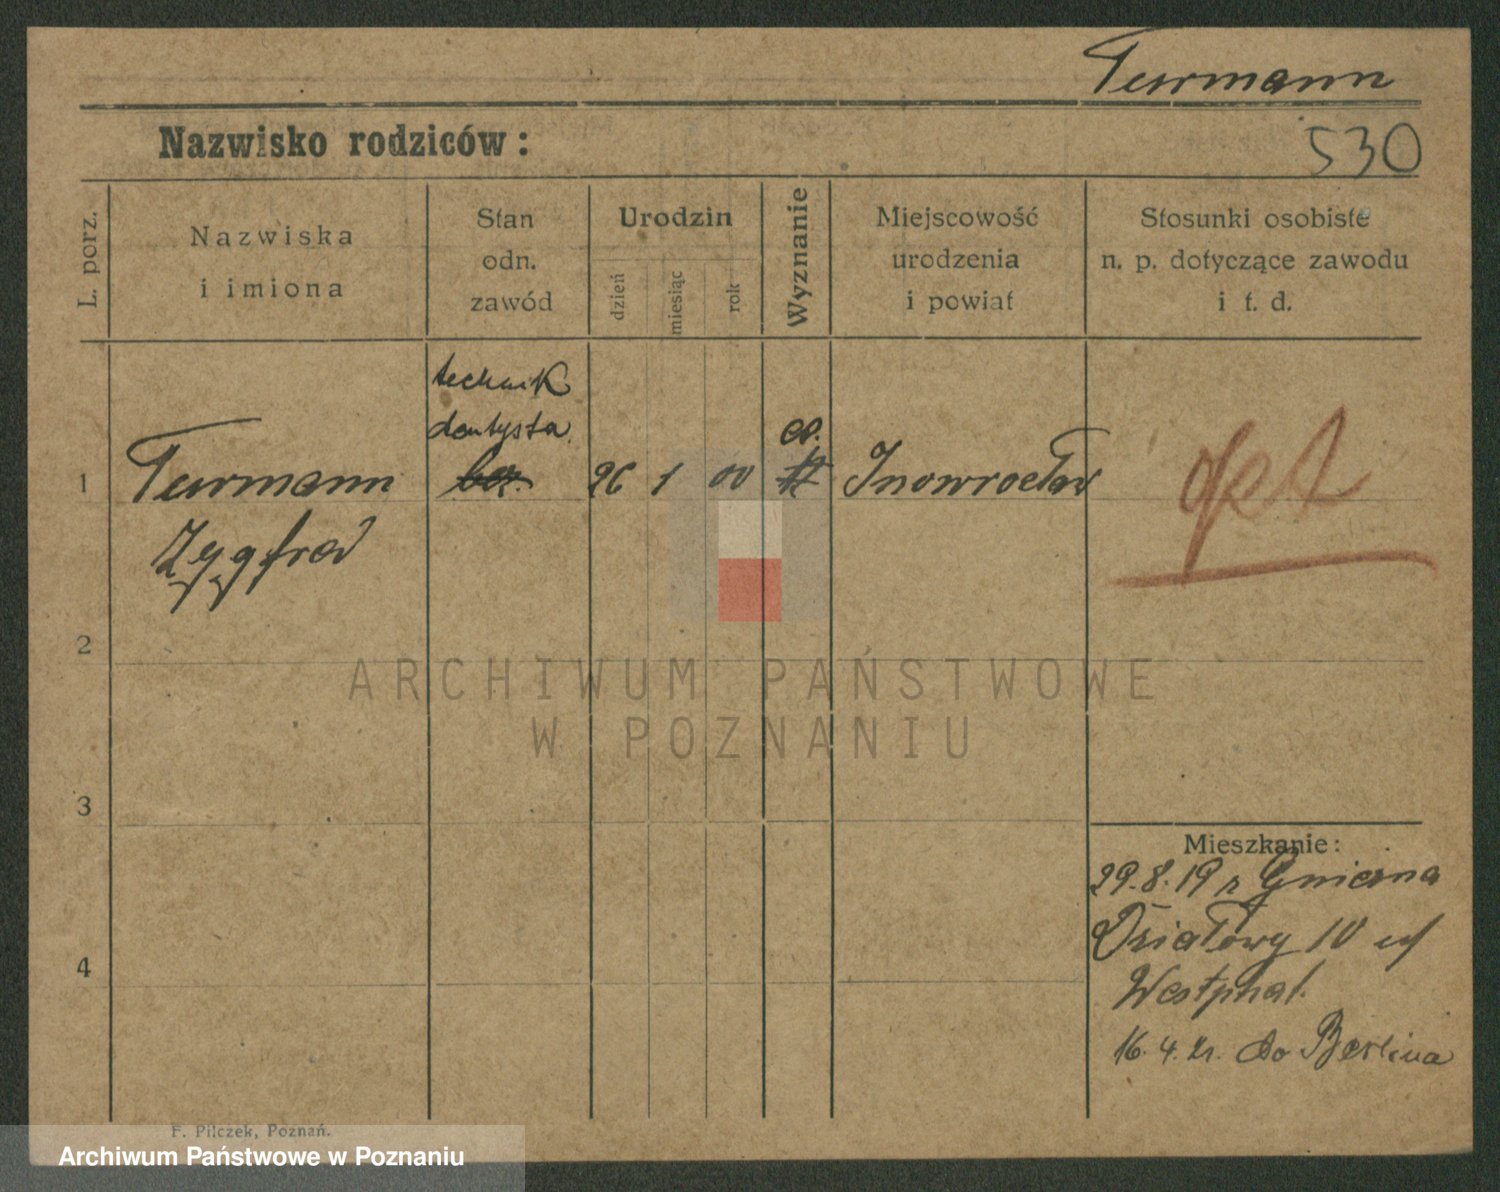 Turmann
Nazwisko rodziców:
530
L. porz.
Nazwiska
i imiona
Stan
odn.
zawód
Urodzin
dzień
miesiąc
rok
Wyznanie
Miejscowość
urodzenia
i powiat
Stosunki osobiste
n. p. dotyczące zawodu
i t. d.
technik
dentysta
1
Turmann
Zygfred
bez.
26 1 00
ew.
Inowrocław
2
3
4
Mieszkanie:
29.8.19 z Gniezna
Działowy 10 u/
Westphal.
16.4.21. do Berlina
F. Pilczek, Poznań.
ARCHIWUM PAŃSTWOWE
W POZNANIU
Archiwum Państwowe w Poznaniu